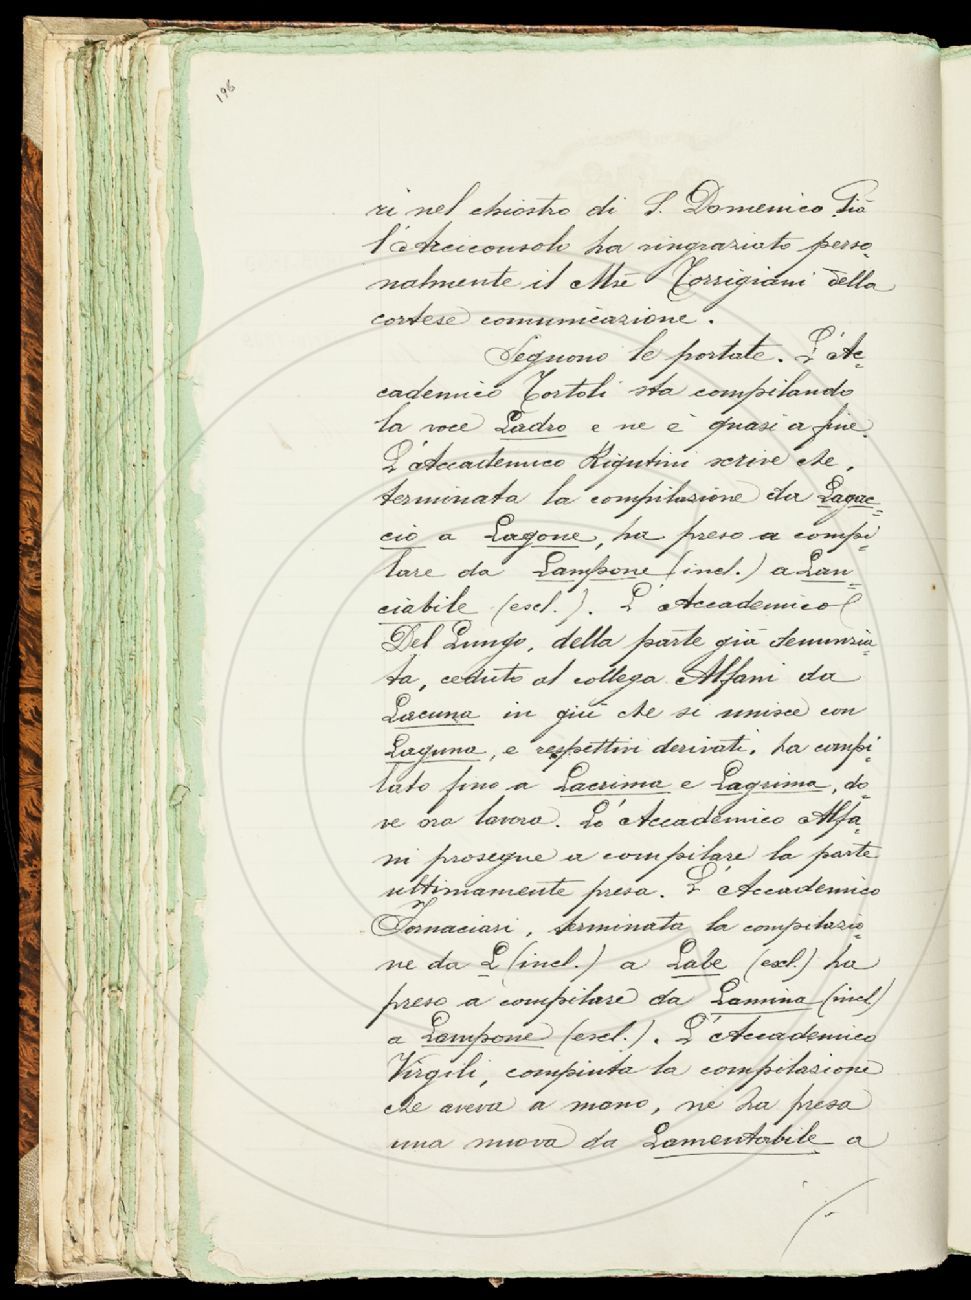 196
ri nel chiostro di S. Domenico. Già
l'Arciconsolo ha ringraziato perso-
nalmente il Mse Torrigiani della
cortese comunicazione.
Seguono le portate. L'Ac-
cademico Tortoli sta compilando
la voce Ladro e ne è quasi a fine.
L'Accademico Rigutini scrive che,
terminata la compilazione da Lagac-
cio a Lagone, ha preso a compi-
lare da Lampone (incl.) a Lan-
ciabile (escl.). L'Accademico
Del Lungo, della parte già denunzia-
ta, ceduto al collega Alfani da
Lacuna in giù che si unisce con
Laguna, e respettivi derivati, ha compi-
lato fino a Lacrima e Lagrima, do-
ve ora lavora. Lo Accademico Alfa-
ni prosegue a compilare la parte
ultimamente presa. L'Accademico
Fornaciari, terminata la compilazio-
ne da L (incl.) a Labe (escl.) ha
preso a compilare da Lamina (incl.)
a Lampone (escl.). L'Accademico
Virgili, compiuta la compilazione
che aveva a mano, ne ha presa
una nuova da Lamentabile a